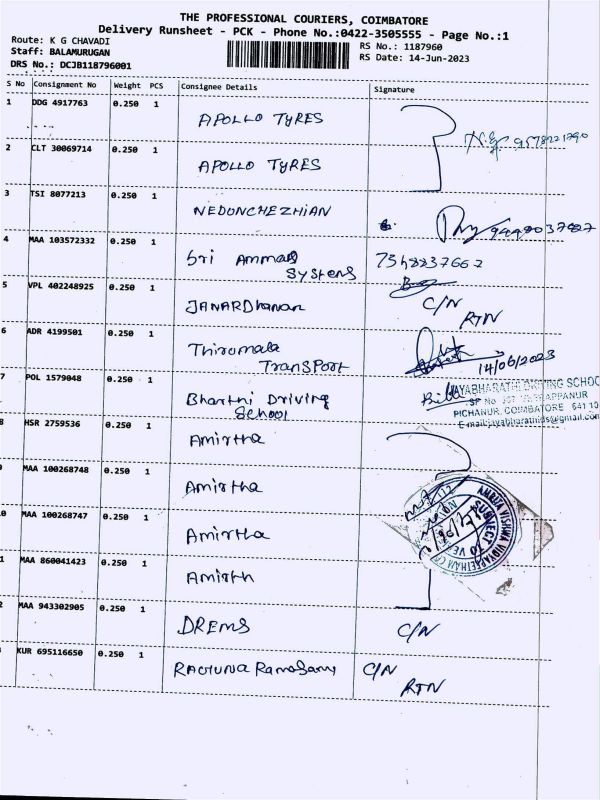 THE PROFESSIONAL COURIERS, COIMBATORE
Delivery Runsheet - PCK - Phone No.:0422-3505555 - Page No.:1
Route: K G CHAVADI
Staff: BALAMURUGAN
DRS No.: DCJB118796001
RS No.: 1187960
RS Date: 14-Jun-2023
S No Consignment No Weight PCS Consignee Details Signature
1 DDG 4917763 0.250 1 APOLLO TYRES
2 CLT 30069714 0.250 1 APOLLO TYRES
3 TSI 8077213 0.250 1 NEDONCHEZHIAN
4 MAA 103572332 0.250 1 Sri Ammas Systems 7548837667
5 VPL 402248925 0.250 1 JANARDhanan C/N RTN
6 ADR 4199501 0.250 1 Thiromala Transport 14/06/2023
7 POL 1579048 0.250 1 Bharthi Driving School
JAYABHARATHI DRIVING SCHOOL
PICHANUR, COIMBATORE 641 10
E-mail:jayabharathids@gmail.com
8 HSR 2759536 0.250 1 Amirtha
MAA 100268748 0.250 1 Amirtha
0 MAA 100268747 0.250 1 Amirtha
1 MAA 860041423 0.250 1 Amirth
AMRITA VISHWA VIDYAPEETHAM
SUBJECT TO VE
2 MAA 943302905 0.250 1 DREMS C/N
KUR 695116650 0.250 1 RAGHUNA Ramasamy C/N RTN